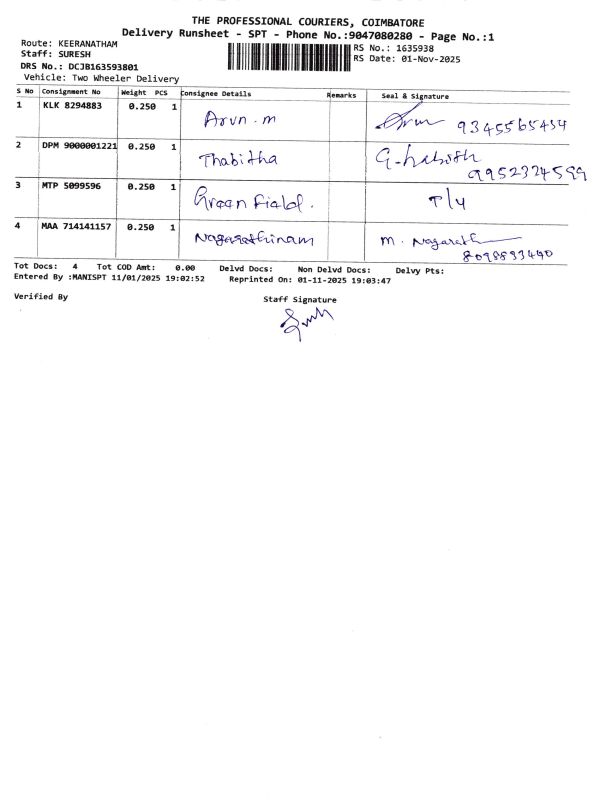 THE PROFESSIONAL COURIERS, COIMBATORE
Delivery Runsheet - SPT - Phone No.:9047080280 - Page No.:1
Route: KEERANATHAM
RS No.: 1635938
Staff: SURESH
RS Date: 01-Nov-2025
DRS No.: DCJB163593801
Vehicle: Two Wheeler Delivery
S No Consignment No Weight PCS Consignee Details Remarks Seal & Signature
1 KLK 8294883 0.250 1 Arun.m 9345565434
2 DPM 9000001221 0.250 1 Thabitha 9952324599
3 MTP 5099596 0.250 1 Green Field.
4 MAA 714141157 0.250 1 Nagarathinam m. Nagarath 8098893440
Tot Docs: 4 Tot COD Amt: 0.00 Delvd Docs: Non Delvd Docs: Delvy Pts:
Entered By :MANISPT 11/01/2025 19:02:52 Reprinted On: 01-11-2025 19:03:47
Verified By Staff Signature